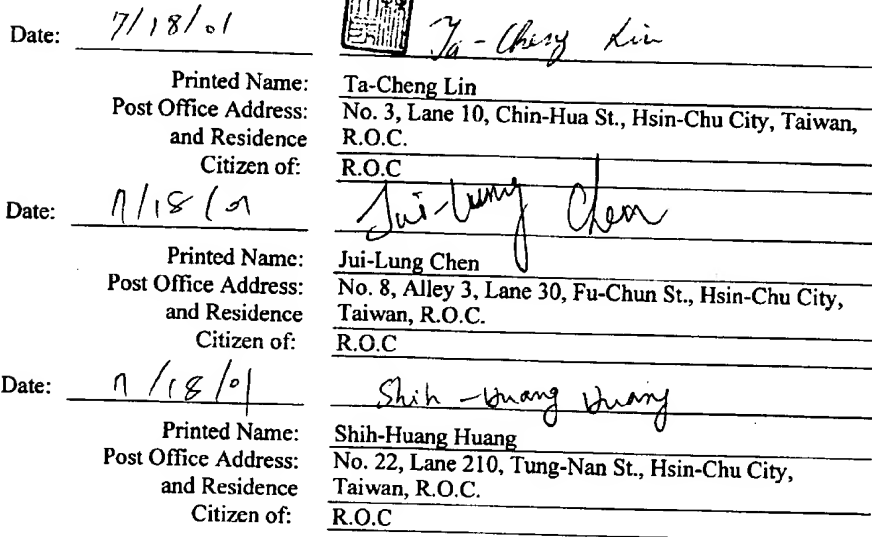 Date: 7/18/01 Ta-Cheng Lin
Printed Name: Ta-Cheng Lin
Post Office Address: No. 3, Lane 10, Chin-Hua St., Hsin-Chu City, Taiwan,
and Residence R.O.C.
Citizen of: R.O.C
Date: 7/18/01 Jui-Lung Chen
Printed Name: Jui-Lung Chen
Post Office Address: No. 8, Alley 3, Lane 30, Fu-Chun St., Hsin-Chu City,
and Residence Taiwan, R.O.C.
Citizen of: R.O.C
Date: 7/18/01 Shih-Huang Huang
Printed Name: Shih-Huang Huang
Post Office Address: No. 22, Lane 210, Tung-Nan St., Hsin-Chu City,
and Residence Taiwan, R.O.C.
Citizen of: R.O.C